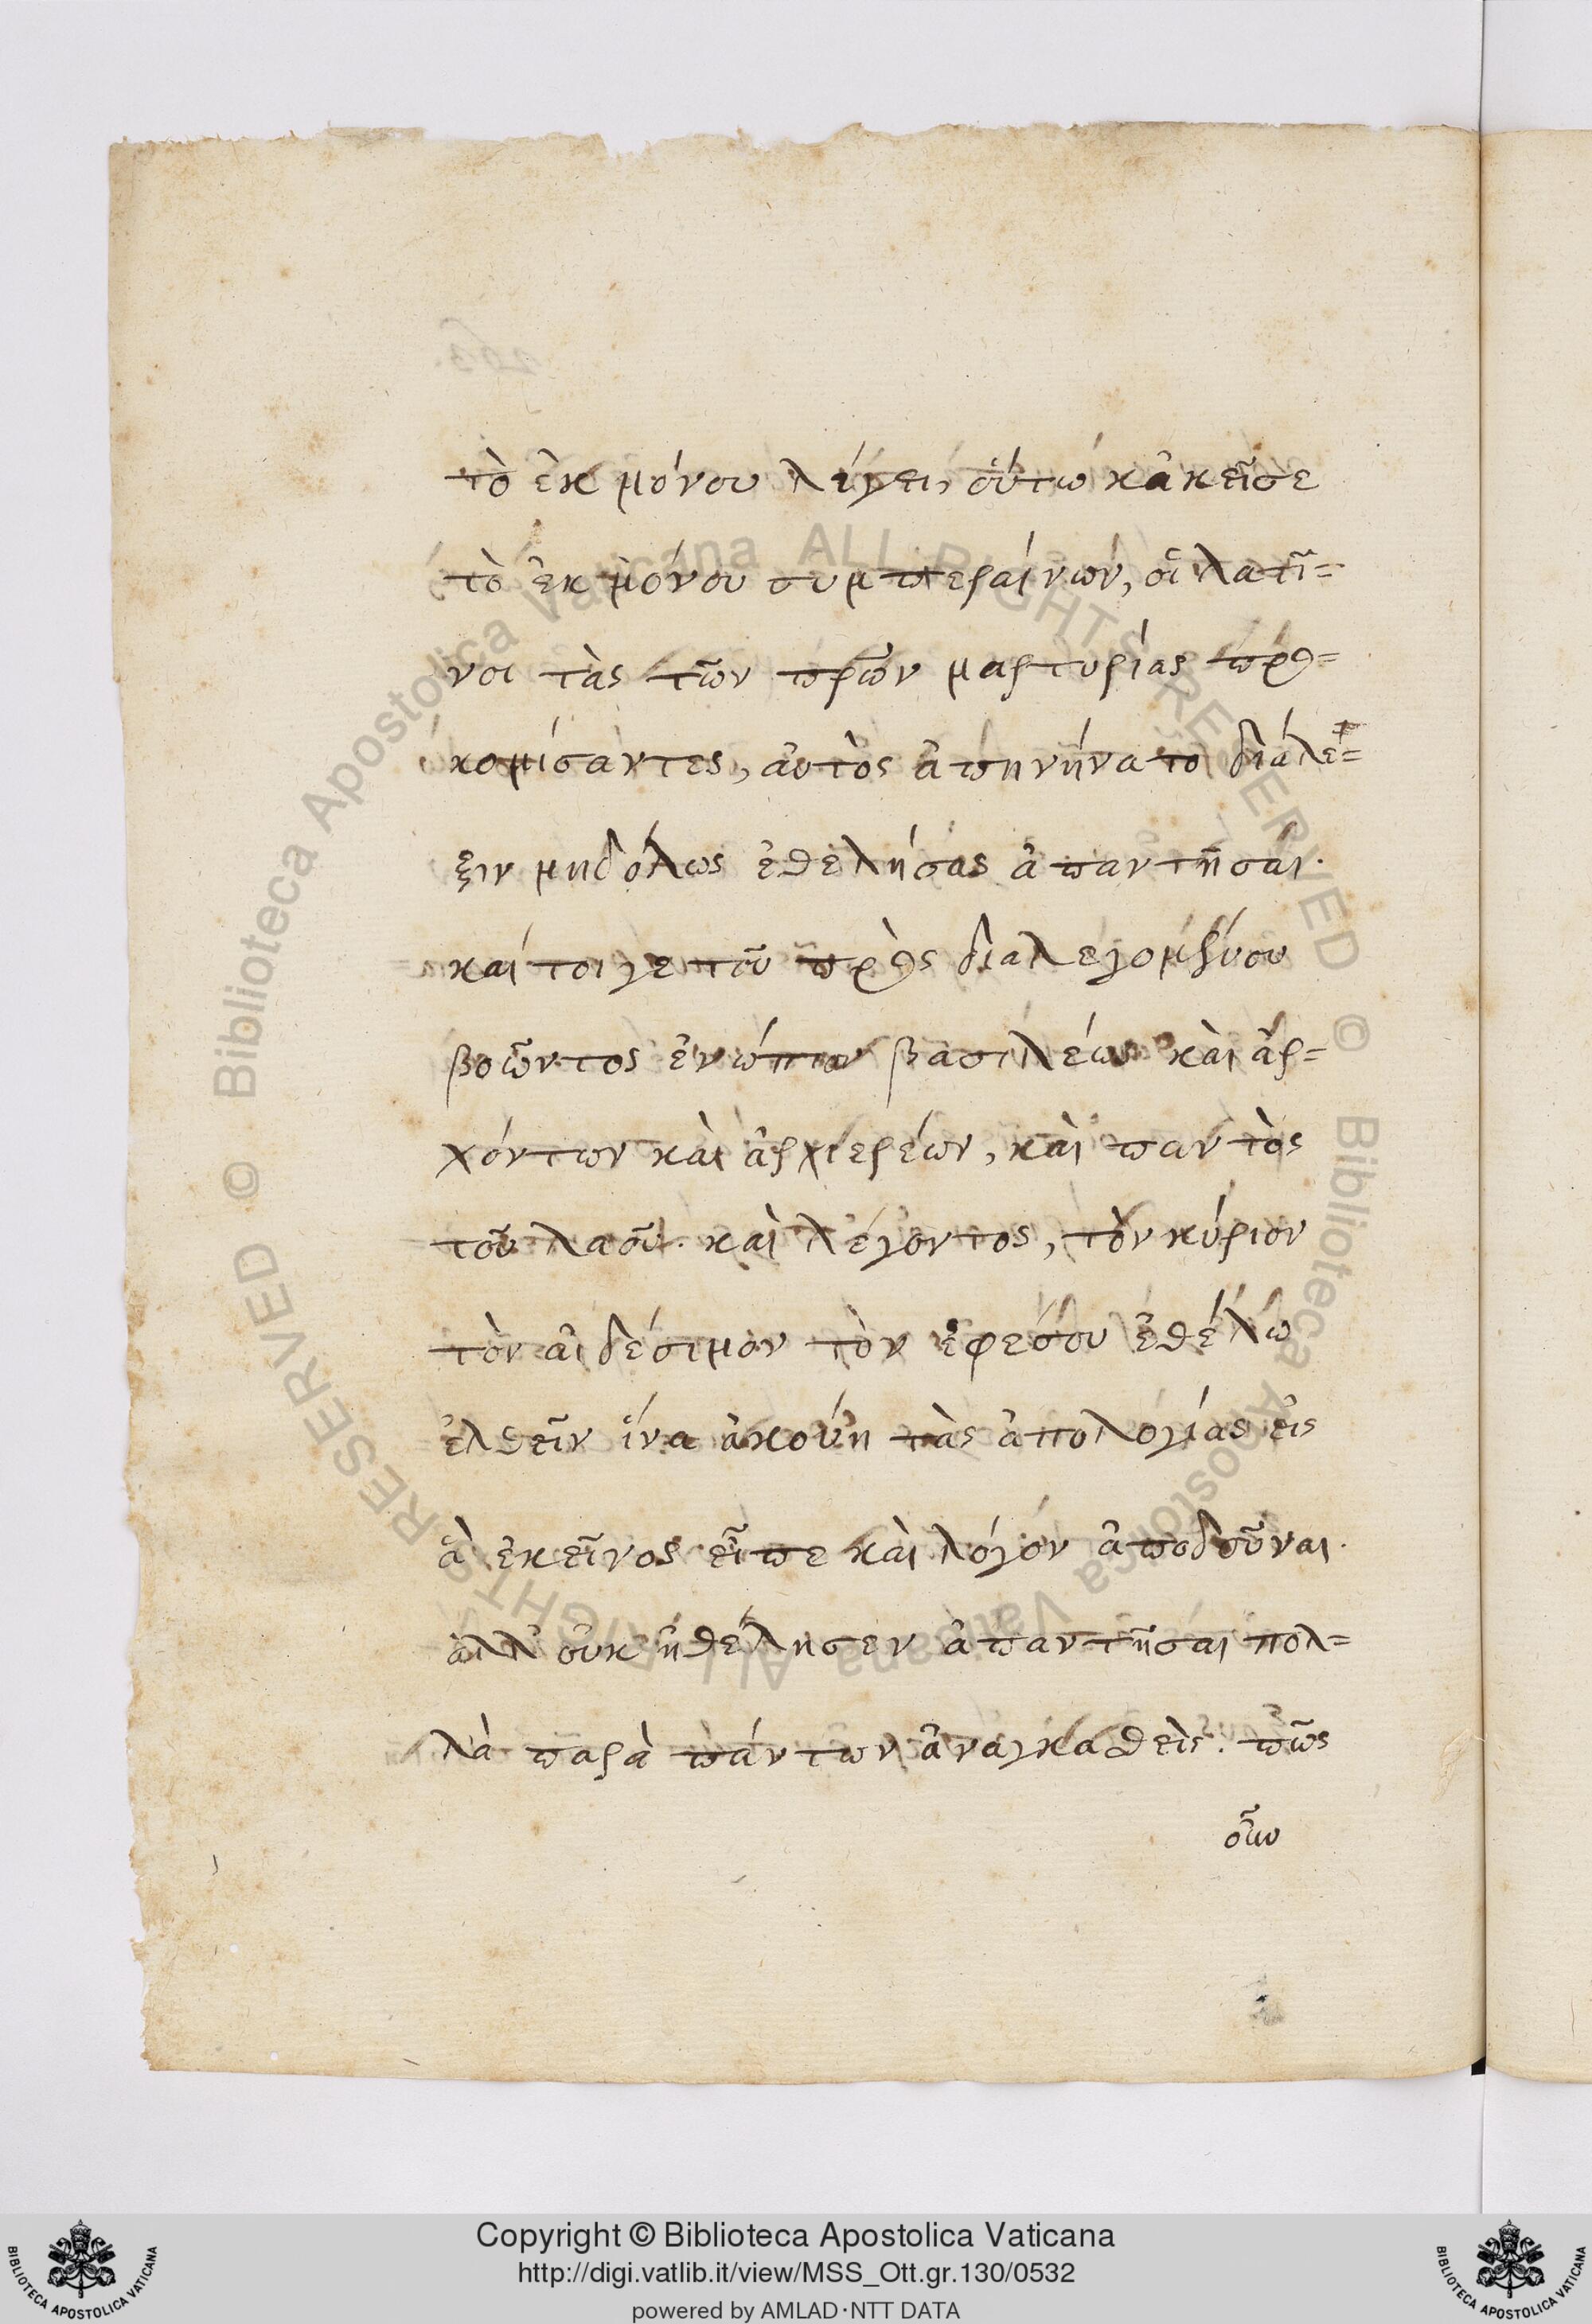 τὸ ἐκ μόνου λέγει, οὕτω κἀκεῖσε
τὸ ἐκ μόνου συμπεραίνων, οἱ λατῖ=
νοι τὰς τῶν πρων μαρτυρίας προ=
κομίσαντες, αὐτὸς ἀπηνήνατο διάλε=
ξιν μηδόλως ἐθελήσας ἀπαντῆσαι.
καίτοιγε τοῦ πρὸς διαλεγομένου
βοῶντος ἐνώπιον βασιλέως καὶ ἀρ=
χόντων καὶ ἀρχιερέων, καὶ παντὸς
τοῦ λαοῦ. καὶ λέγοντος, τὸν κύριον
τὸν αἰδέσιμον τὸν ἐφέσου ἐθέλω
ἐλθεῖν ἵνα ἀκούῃ τὰς ἀπολογίας εἰς
ἃ ἐκεῖνος εἶπε καὶ λόγον ἀποδοῦναι.
ἀλλ' οὐκ ἠθέλησεν ἀπαντῆσαι πολ=
λὰ παρὰ πάντων ἀναγκασθείς. πῶς
οὖν
Copyright © Biblioteca Apostolica Vaticana
http://digi.vatlib.it/view/MSS_Ott.gr.130/0532
powered by AMLAD·NTT DATA
BIBLIOTECA APOSTOLICA VATICANA
BIBLIOTECA APOSTOLICA VATICANA
© Biblioteca Apostolica Vaticana ALL RIGHTS RESERVED © Biblioteca Apostolica Vaticana ALL RIGHTS RESERVED